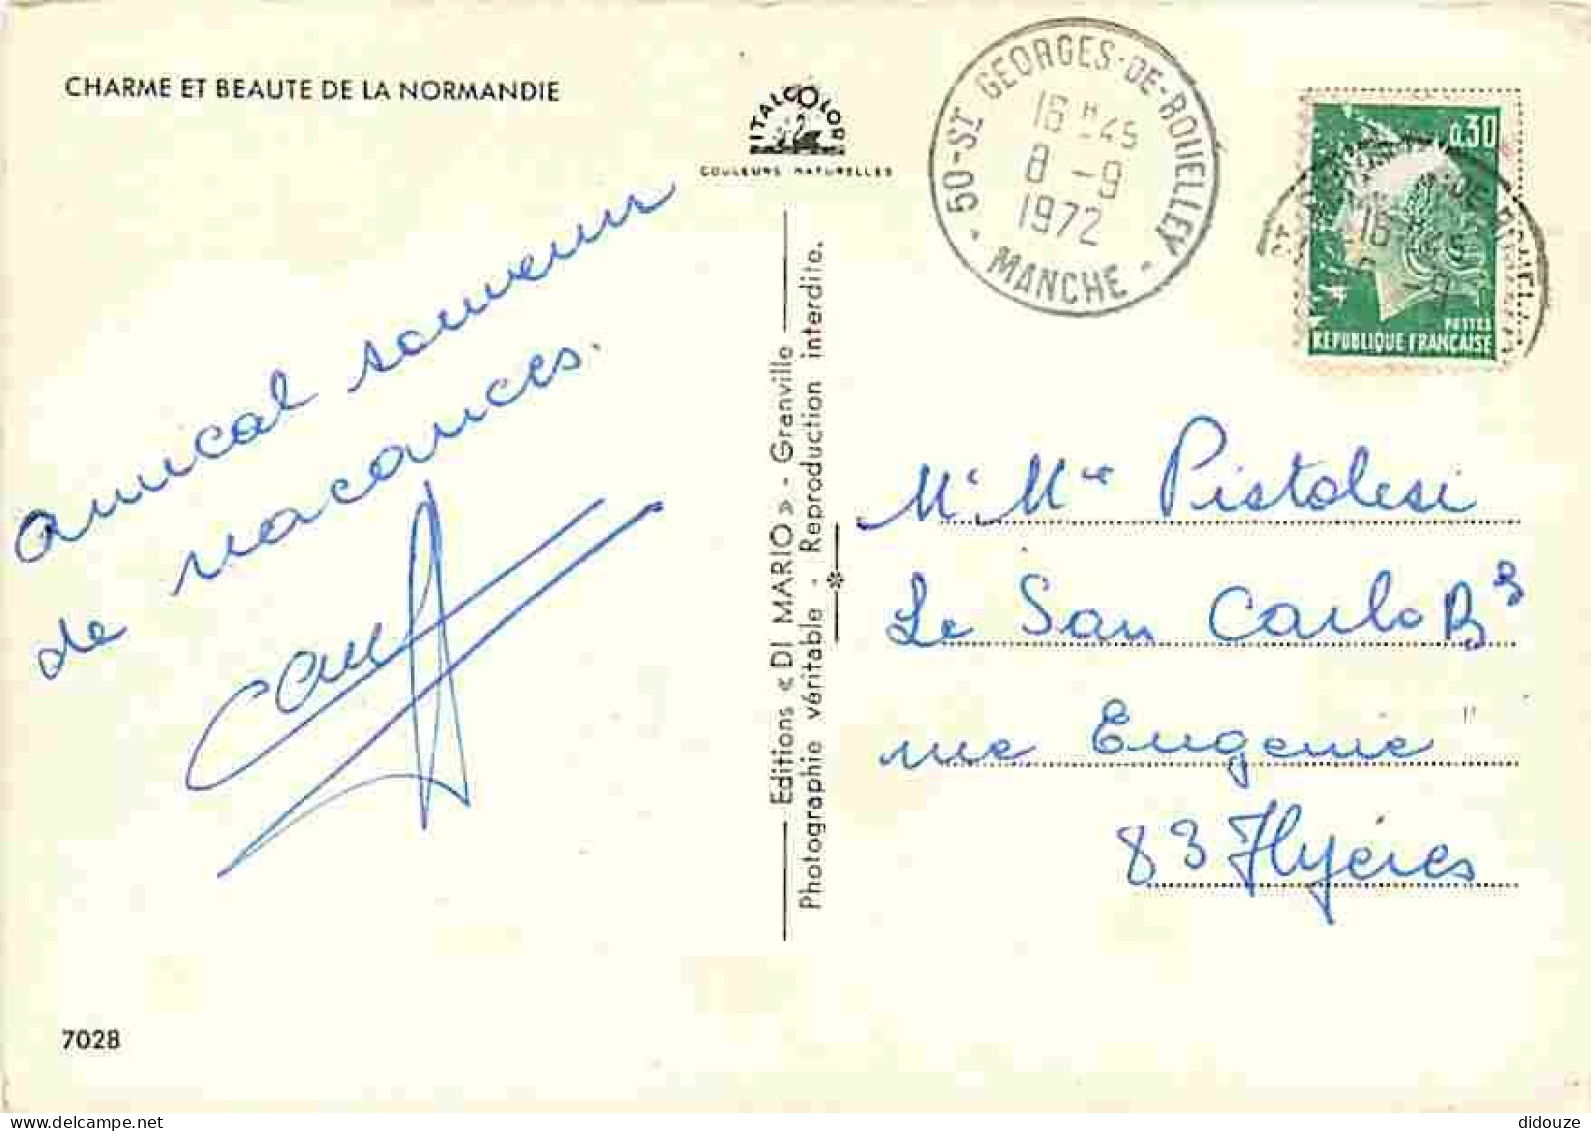 CHARME ET BEAUTE DE LA NORMANDIE
ITALCOLOR
COULEURS NATURELLES
50-ST GEORGES-DE-BOUELLEY
16H45
8 -9
1972
- MANCHE -
0,30
POSTES
REPUBLIQUE FRANÇAISE
16H45
amical souvenir
de vacances.
Editions « DI MARIO » - Granville
Photographie véritable - Reproduction interdite.
Mr Mme Pistolesi
Le San Carlo B3
rue Eugenie
83 Hyéres
7028
didouze